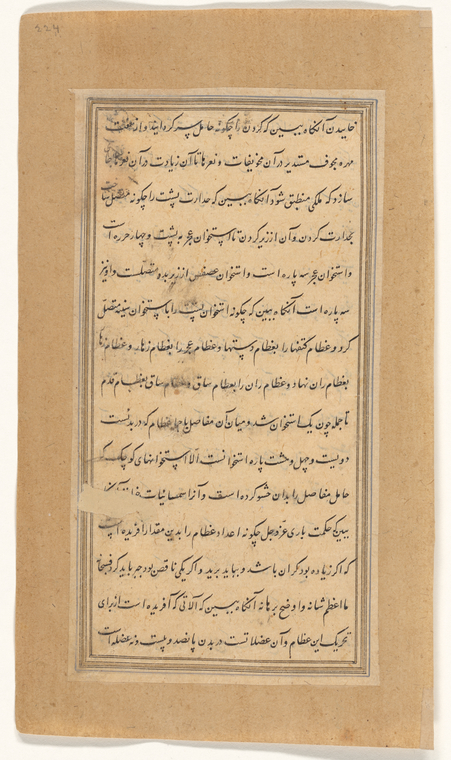 224
خاییدن آنگاه ببین که گردن را چگونه حامل سر کرده اند و از هفت
مهره مجوف مستدیر در آن تجویفات و نعرها تا آن زیادت در آن نعرها جا
سازد که ملکی منطبق شود آنگاه ببین که جدارت پشت را چگونه متصل ساخت
بجدارت گردن و آن از زیر گردن تا استخوان عجز به پشت و چهار خرزه است
و استخوان عجز سه پاره است و استخوان عصعص از زیر بدو متصلست و او نیز
سه پاره است آنگاه ببین که چگونه استخوان پشت را با استخوان سینه متصل
کرد و عظام کتفها را بعظام دستها و عظام عجز را بعظام زهار و عظام زهار
بعظام ران نهاد و عظام ران را بعظام ساق و عظام ساق بعظام قدم
تا جمله چون یک استخوان شد و میان آن مفاصل با جمله عظام که در بدنست
دویست و چهل و هشت پاره استخوانست الا استخوانهای کوچک که
حامل مفاصل را بدان حشو کرده است و آنرا سمسانیات خوانند
ببین که حکمت باری عز و جل چگونه اعداد عظام را بدین مقدار آفریده است
که اگر زیاده بود گران باشد و بباید برید و اگر یکی ناقص بود جبر باید کرد فسبحانه
ما اعظم شانه و اوضح برهانه آنگاه ببین که آلاتی که آفریده است از برای
تحریک این عظام و آن عضلاتست در بدن پانصد و بیست و نه عضله است